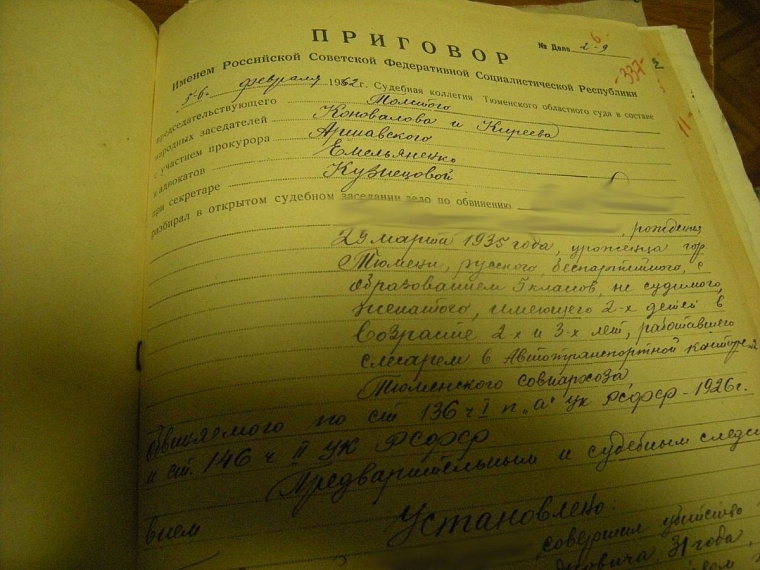 ПРИГОВОР
№ Дело 2-9
6
337
2
11-
Именем Российской Советской Федеративной Социалистической Республики
5-6. февраля 1962 г. Судебная коллегия Тюменского областного суда в составе
председательствующего Толстого
народных заседателей Коновалова и Киреева
с участием прокурора Аршавского
и адвокатов Емельяненко
при секретаре Кузнецовой
разбирал в открытом судебном заседании дело по обвинению
, рождения
29 марта 1935 года, уроженца гор.
Тюмени, русского, беспартийного, с
образованием 5 классов, не судимого,
женатого, имеющего 2-х детей в
возрасте 2-х и 3-х лет, работавшего
слесарем в Автотранспортной конторе 2
Тюменского совнархоза
обвиняемого по ст 136 ч I п „а" УК РСФСР - 1926 г.
и ст. 146 ч II УК РСФСР
Предварительным и судебным следст
вием
Установлено:
, совершил убийство
31 года,